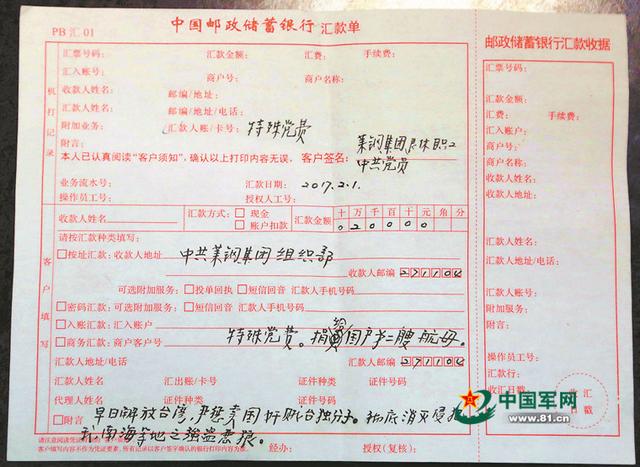 PB汇01
中国邮政储蓄银行 汇款单
汇票号码: 汇款金额: 汇费: 手续费:
汇入账号: 商户号: 商户名称:
收款人姓名: 邮编/地址:
汇款人姓名: 邮编/地址/电话:
附加业务: 汇款人账/卡号: 特殊党费
附言: 莱钢集团退休职工
本人已认真阅读“客户须知”,确认以上打印内容无误。 客户签名: 中共党员
业务流水号: 汇款日期: 2017.2.1.
操作员工号: 授权人工号:
机打记录
收款人姓名 汇款方式: 现金 账户扣款 汇款金额 十万千百十元角分
020000
请按汇款种类填写:
按址汇款: 收款人地址 中共莱钢集团组织部
收款人邮编 271104
可选附加服务: 投单回执 短信回音 汇款人手机号码
密码汇款: 可选附加服务: 短信回音 汇款人手机号码
入账汇款: 汇入账户
商务汇款: 商户客户号 特殊党费。捐给国产第二艘航母。
汇款人地址/电话 汇款人邮编 271104
汇款人姓名 汇出账/卡号 证件种类 证件号码
代理人姓名 证件种类 证件号码
附言 早日解放台湾,严惩卖国奸贼台独分子。彻底消灭侵犯
我南海等地之强盗恶狼。
客户填写
请注意阅读凭证
客户填写内容不作为凭证要素,所有记录以客户签字确认的银行打印内容为准。
经办: 授权(复核):
邮政储蓄银行汇款收据
汇票号码:
汇款金额:
汇费: 手续费:
汇入账户:
商户号:
商户名称:
收款人姓名:
收款人地址:
汇款人姓名:
汇款人地址/电话:
汇款人账号:
附加服务:
附言:
操作员工号:
汇款行:
收汇日期:
收汇
日戳
中国军网
www.81.cn